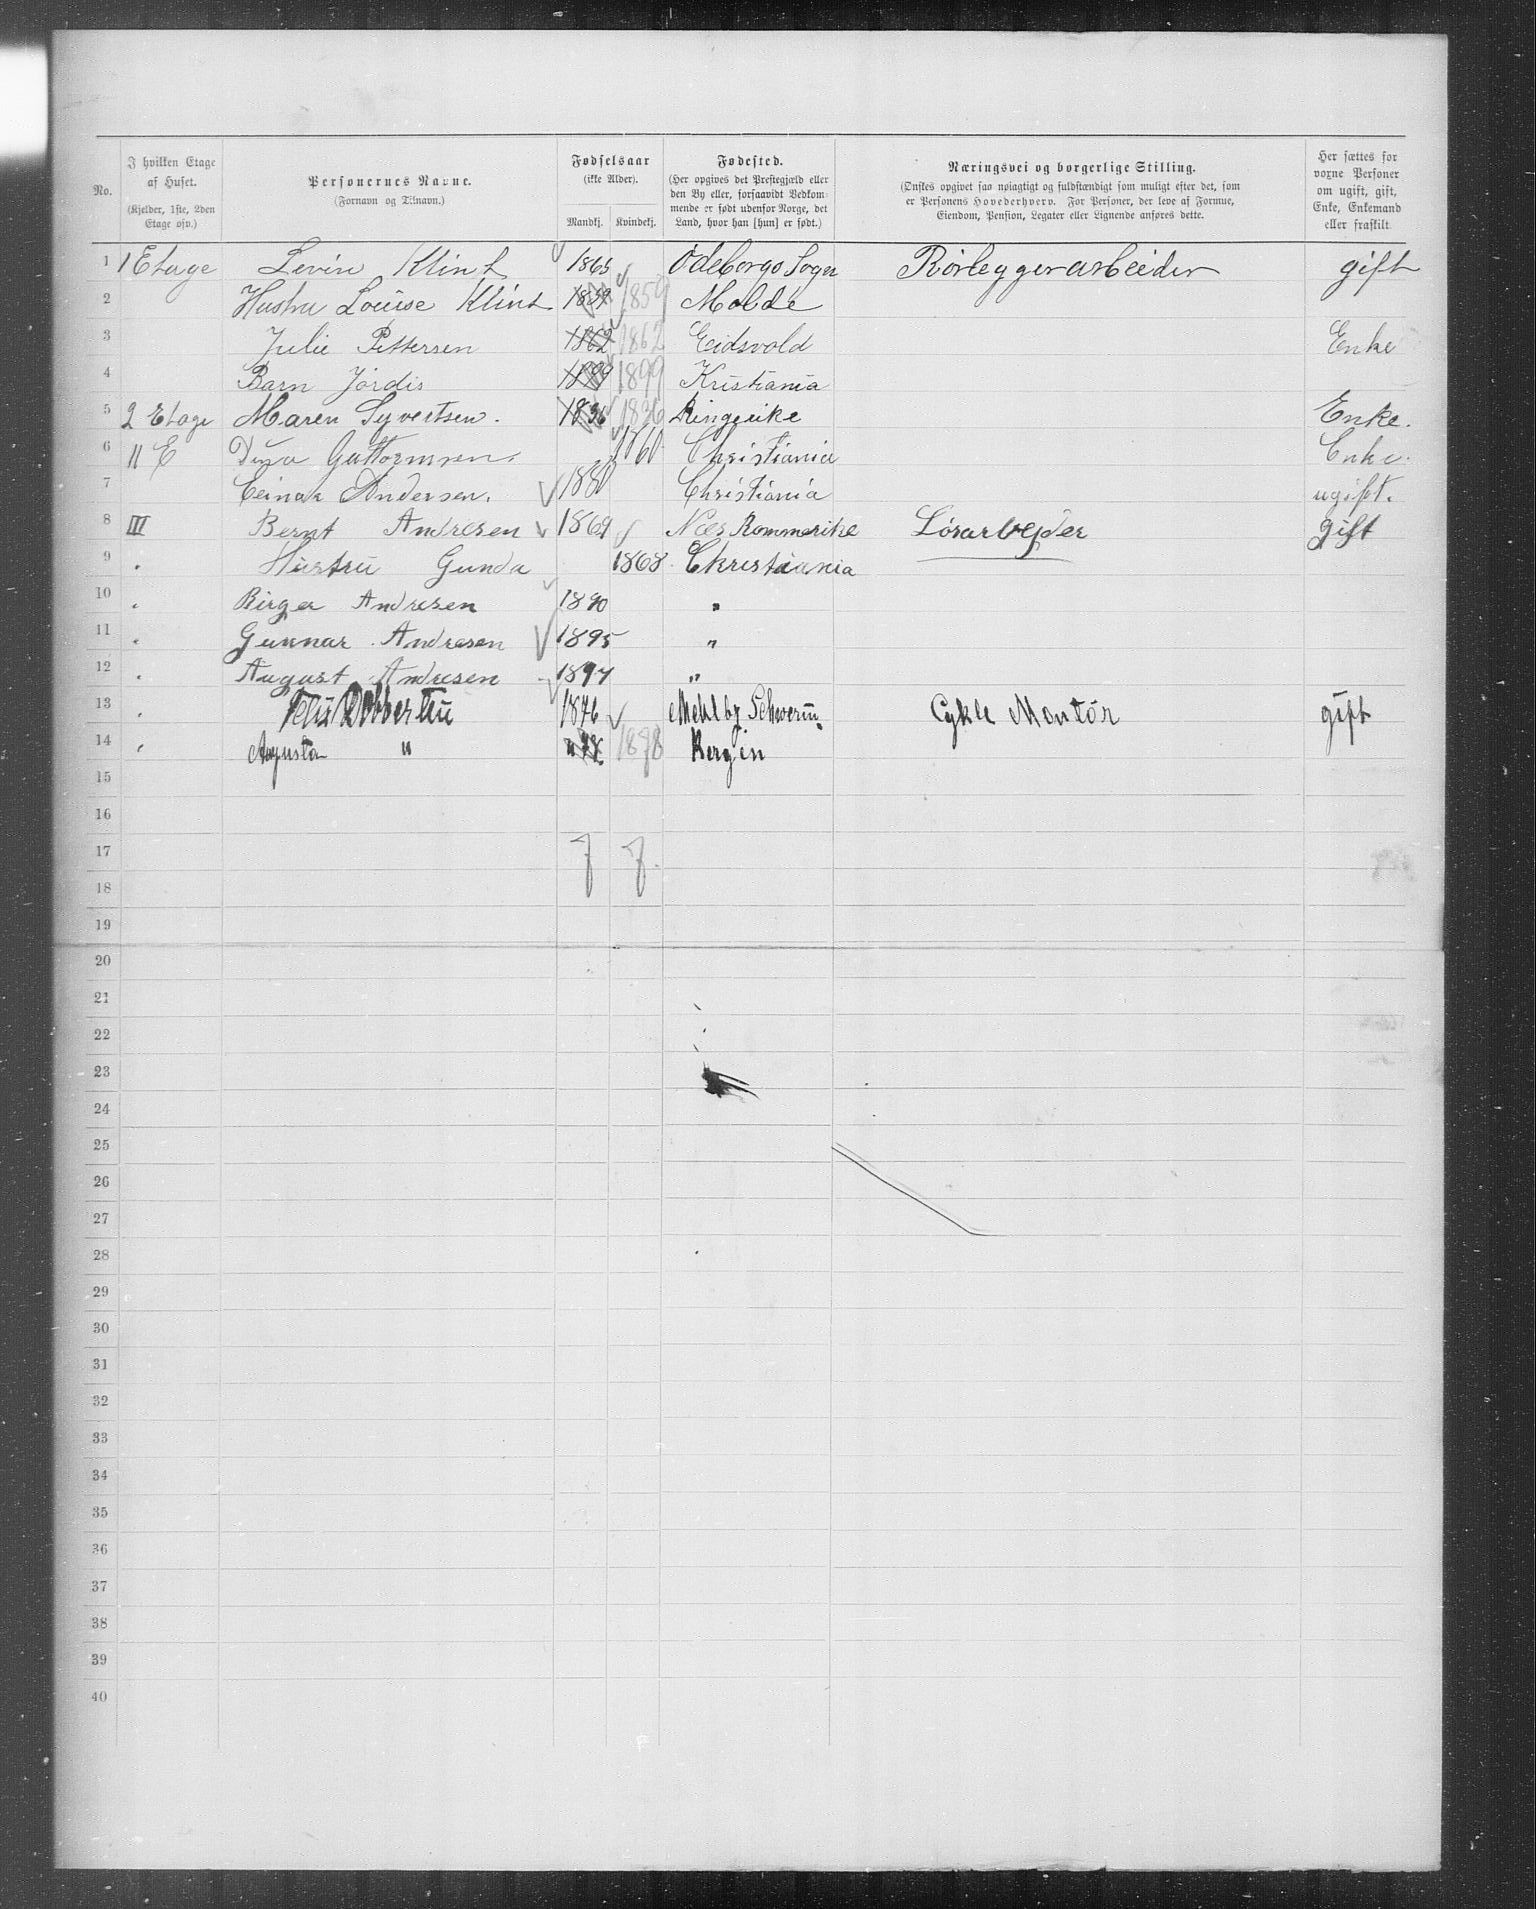 No.
I hvilken Etage af Huset. (Kjelder, 1ste, 2den Etage osv.)
Personernes Navne. (Fornavn og Tilnavn.)
Fødselsaar (ikke Alder). Mandkj. Kvindekj.
Fødested. (Her opgives det Prestegjæld eller den By eller, forsaavidt Vedkommende er født udenfor Norge, det Land, hvor han [hun] er født.)
Næringsvei og borgerlige Stilling. (Ønskes opgivet saa nøiagtigt og fuldstændigt som muligt efter det, som er Personens Hovederhverv. For Personer, der leve af Formue, Eiendom, Pension, Legater eller Lignende anføres dette.
Her sættes for voxne Personer om ugift, gift, Enke, Enkemand eller fraskilt
1 1 Etage Levin Klint 1865 Ødeborgs Sogn Rørleggerarbeider gift
2 Hustru Louise Klint 1859 1859 Molde
3 Julie Pettersen 1862 1862 Eidsvold Enke
4 Barn Jørdis 1899 1899 Kristiania
5 2 Etage Maren Syvertsen. 1836 1836 Ringerike Enke.
6 11 E Guttormsen. 1860 Christiania Enke.
7 Einar Andersen. 1880 Christiania ugift.
8 III Bernt Andresen 1869 Næs Rommerike Løsarbejder gift
9 " Hustru Gunda 1868 Christiania
10 " Birger Andresen 1890 "
11 " Gunnar Andresen 1895 "
12 " August Andresen 1897 "
13 " Dobbertin 1876 Schwerin Cykle Montør gift
14 " Augusta " " 78 1878 Bergin
15
16
17 7 7.
18
19
20
21
22
23
24
25
26
27
28
29
30
31
32
33
34
35
36
37
38
39
40